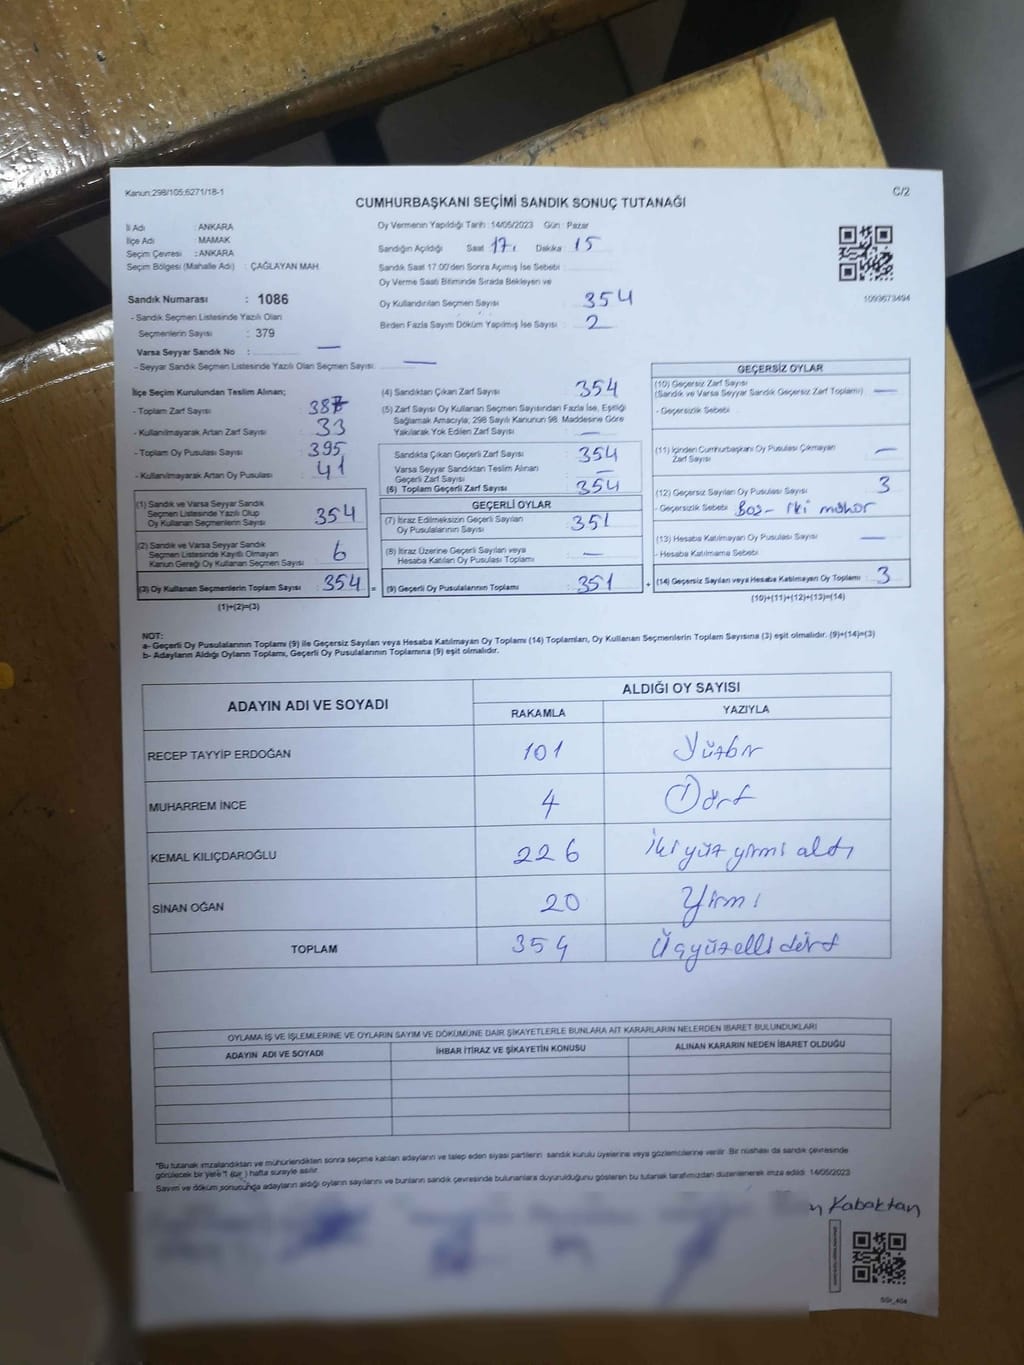 Kanun:298/105;6271/18-1
C/2
CUMHURBAŞKANI SEÇİMİ SANDIK SONUÇ TUTANAĞI
İl Adı : ANKARA
İlçe Adı : MAMAK
Seçim Çevresi : ANKARA
Seçim Bölgesi (Mahalle Adı) : ÇAĞLAYAN MAH
Sandık Numarası : 1086
- Sandık Seçmen Listesinde Yazılı Olan
Seçmenlerin Sayısı : 379
Varsa Seyyar Sandık No : —
- Seyyar Sandık Seçmen Listesinde Yazılı Olan Seçmen Sayısı: —
Oy Vermenin Yapıldığı Tarih : 14/05/2023 Gün : Pazar
Sandığın Açıldığı Saat : 17 Dakika : 15
Sandık Saat 17.00'den Sonra Açılmış İse Sebebi :
Oy Verme Saati Bitiminde Sırada Bekleyen ve
Oy Kullandırılan Seçmen Sayısı : 354
Birden Fazla Sayım Döküm Yapılmış İse Sayısı : 2
1093673494
İlçe Seçim Kurulundan Teslim Alınan;
- Toplam Zarf Sayısı : 387
- Kullanılmayarak Artan Zarf Sayısı : 33
- Toplam Oy Pusulası Sayısı : 395
- Kullanılmayarak Artan Oy Pusulası : 41
(1) Sandık ve Varsa Seyyar Sandık
Seçmen Listesinde Yazılı Olup
Oy Kullanan Seçmenlerin Sayısı : 354
(2) Sandık ve Varsa Seyyar Sandık
Seçmen Listesinde Kayıtlı Olmayan
Kanun Gereği Oy Kullanan Seçmen Sayısı : 6
(3) Oy Kullanan Seçmenlerin Toplam Sayısı : 354 =
(1)+(2)=(3)
(4) Sandıktan Çıkan Zarf Sayısı : 354
(5) Zarf Sayısı Oy Kullanan Seçmen Sayısından Fazla İse, Eşitliği
Sağlamak Amacıyla, 298 Sayılı Kanunun 98. Maddesine Göre
Yakılarak Yok Edilen Zarf Sayısı : —
Sandıkta Çıkan Geçerli Zarf Sayısı : 354
Varsa Seyyar Sandıktan Teslim Alınan
Geçerli Zarf Sayısı : —
(6) Toplam Geçerli Zarf Sayısı : 354
GEÇERLİ OYLAR
(7) İtiraz Edilmeksizin Geçerli Sayılan
Oy Pusulalarının Sayısı : 351
(8) İtiraz Üzerine Geçerli Sayılan veya
Hesaba Katılan Oy Pusulası Toplamı : —
(9) Geçerli Oy Pusulalarının Toplamı : 351 +
GEÇERSİZ OYLAR
(10) Geçersiz Zarf Sayısı
(Sandık ve Varsa Seyyar Sandık Geçersiz Zarf Toplamı) : —
- Geçersizlik Sebebi :
(11) İçinden Cumhurbaşkanı Oy Pusulası Çıkmayan
Zarf Sayısı : —
(12) Geçersiz Sayılan Oy Pusulası Sayısı : 3
- Geçersizlik Sebebi : Boş - iki mühür
(13) Hesaba Katılmayan Oy Pusulası Sayısı : —
- Hesaba Katılmama Sebebi :
(14) Geçersiz Sayılan veya Hesaba Katılmayan Oy Toplamı : 3
(10)+(11)+(12)+(13)=(14)
NOT:
a- Geçerli Oy Pusulalarının Toplamı (9) ile Geçersiz Sayılan veya Hesaba Katılmayan Oy Toplamı (14) Toplamları, Oy Kullanan Seçmenlerin Toplam Sayısına (3) eşit olmalıdır. (9)+(14)=(3)
b- Adayların Aldığı Oyların Toplamı, Geçerli Oy Pusulalarının Toplamına (9) eşit olmalıdır.
ADAYIN ADI VE SOYADI ALDIĞI OY SAYISI
RAKAMLA YAZIYLA
RECEP TAYYİP ERDOĞAN 101 Yüzbir
MUHARREM İNCE 4 Dört
KEMAL KILIÇDAROĞLU 226 İki yüz yirmi altı
SİNAN OĞAN 20 Yirmi
TOPLAM 354 Üçyüzelli dört
OYLAMA İŞ VE İŞLEMLERİNE VE OYLARIN SAYIM VE DÖKÜMÜNE DAİR ŞİKAYETLERLE BUNLARA AİT KARARLARIN NELERDEN İBARET BULUNDUKLARI
ADAYIN ADI VE SOYADI İHBAR İTİRAZ VE ŞİKAYETİN KONUSU ALINAN KARARIN NEDEN İBARET OLDUĞU
*Bu tutanak imzalandıktan ve mühürlendikten sonra seçime katılan adayların ve talep eden siyasi partilerin sandık kurulu üyelerine veya gözlemcilerine verilir. Bir nüshası da sandık çevresinde
görülecek bir yere "1 (bir) hafta süreyle asılır.
Sayım ve döküm sonucunda adayların aldığı oyların sayılarını ve bunların sandık çevresinde bulunanlara duyurulduğunu gösteren bu tutanak tarafımızdan düzenlenerek imza edildi. 14/05/2023
Kabaktan